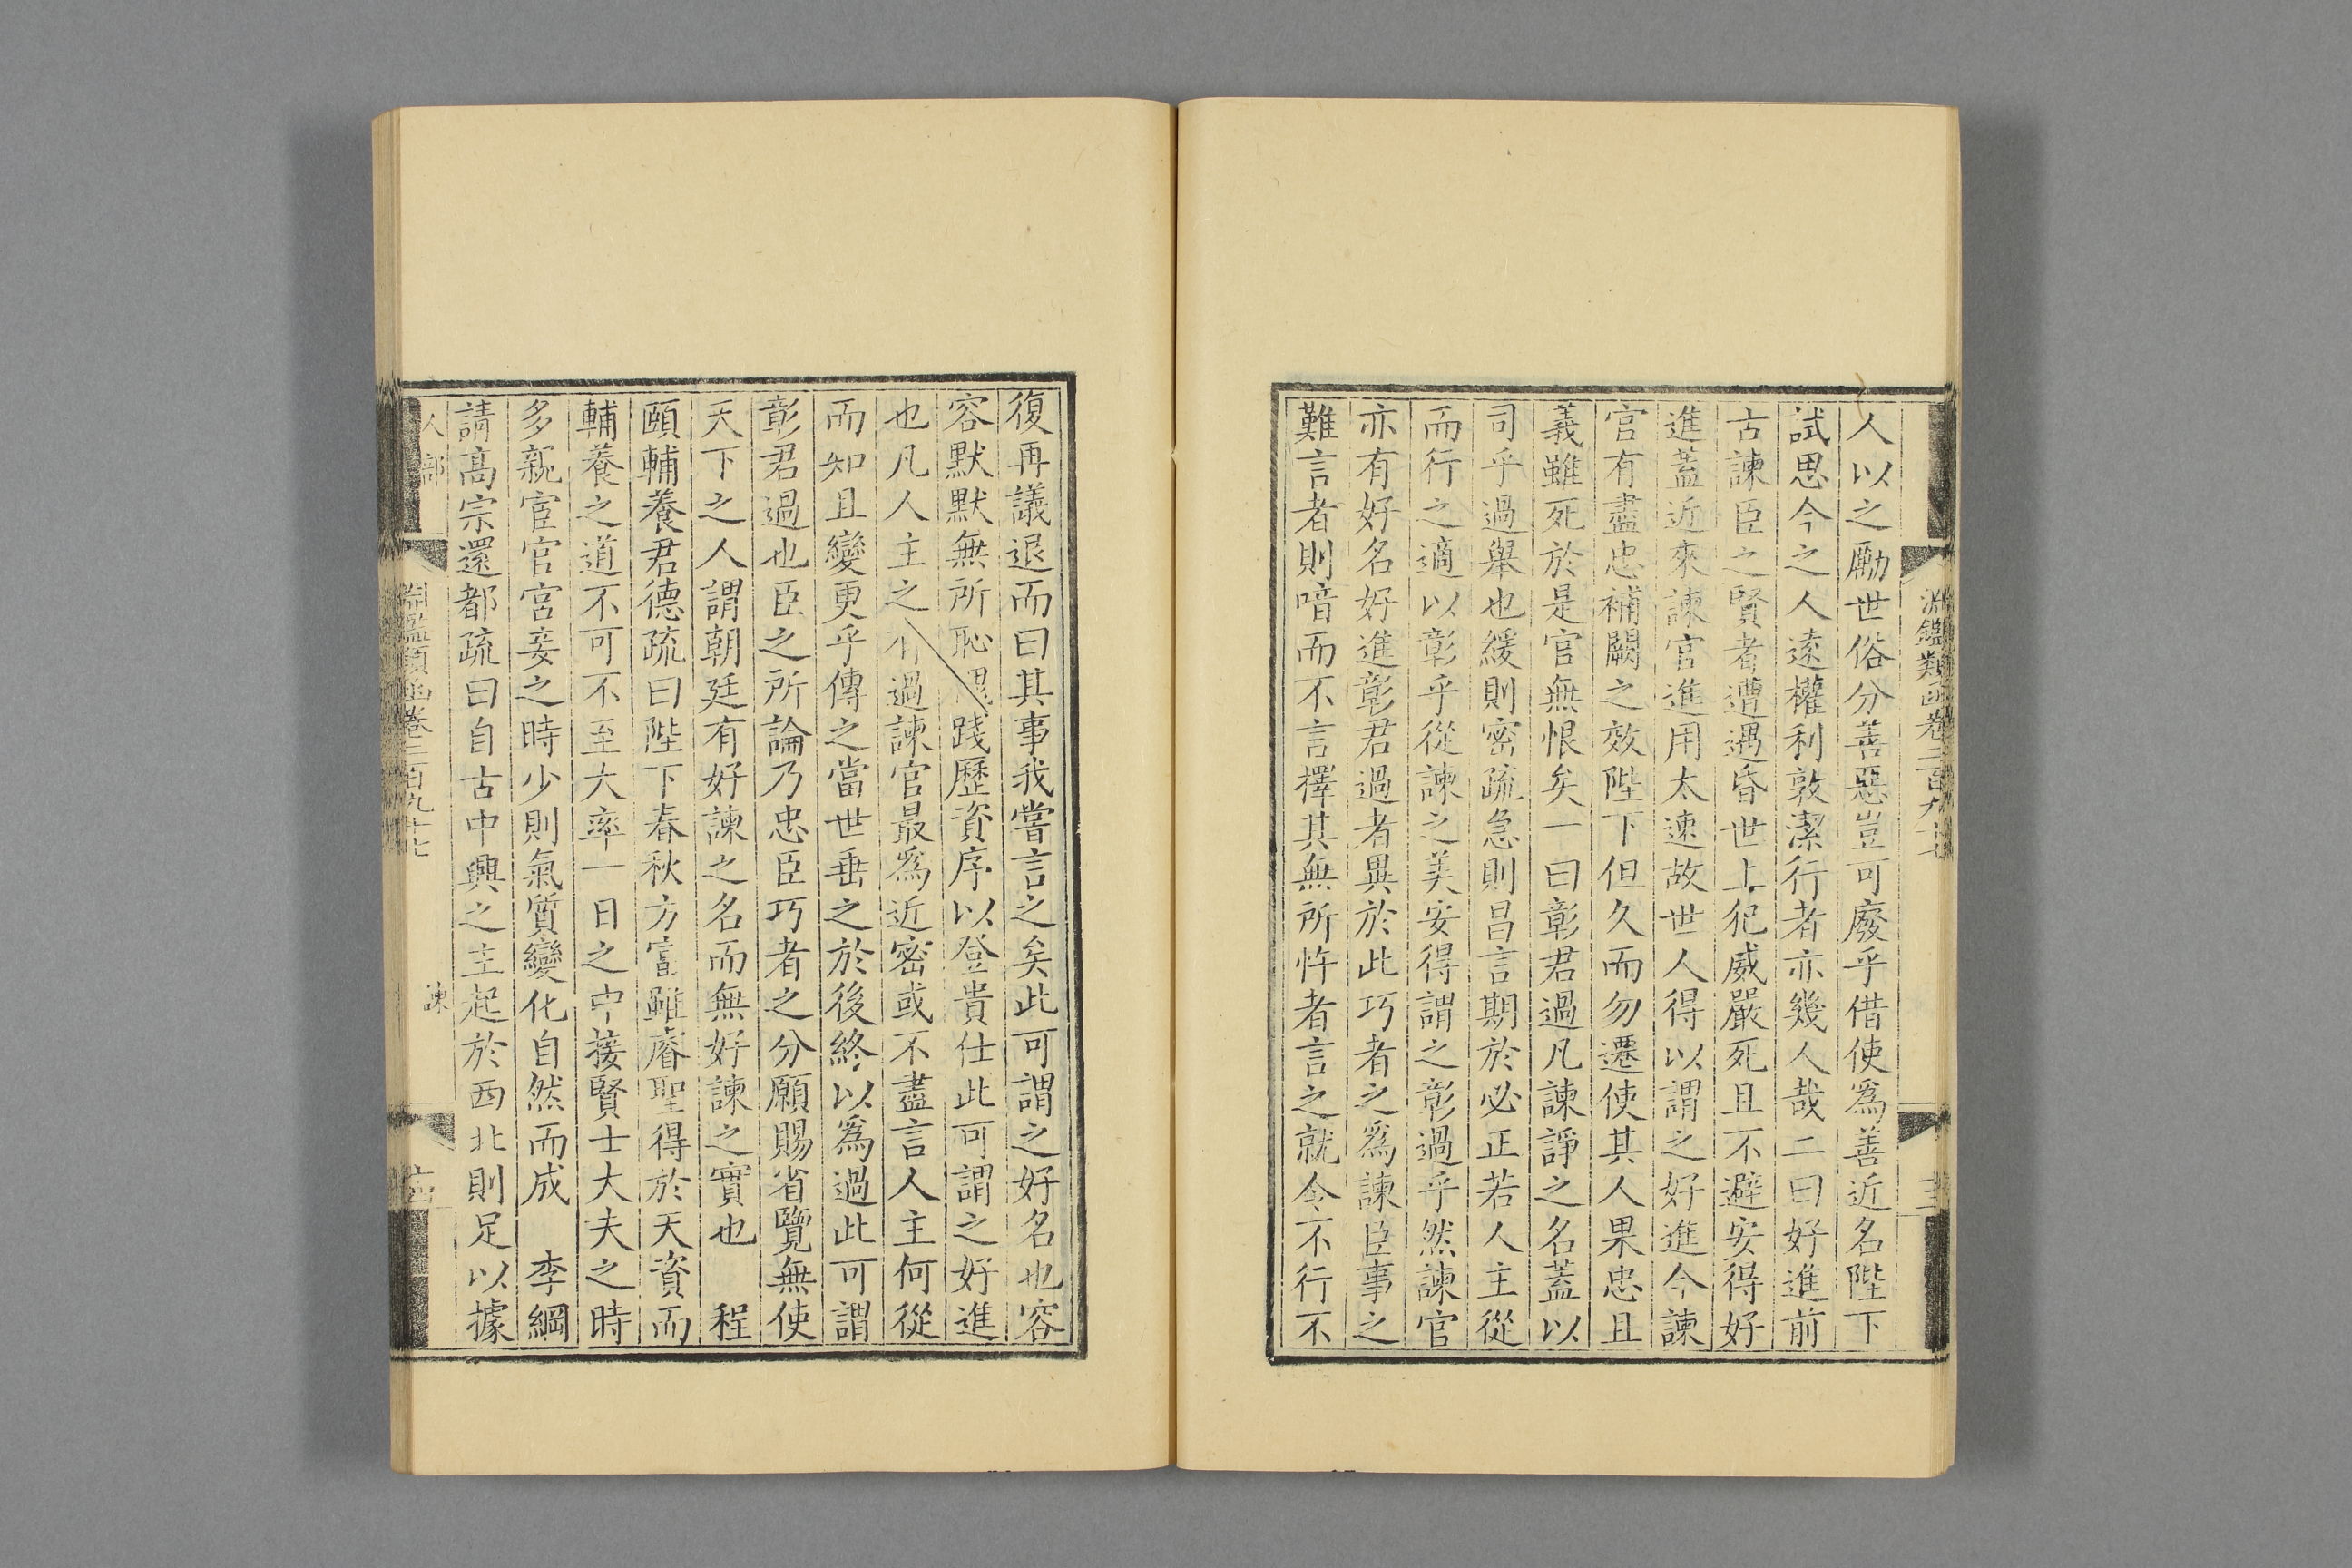 淵鑑類函卷二百九十七
十三
人以之勵世俗分善惡豈可廢乎借使爲善近名陛下
試思今之人遠權利敦潔行者亦幾人哉二曰好進前
古諫臣之賢者遭遇昏世上犯威嚴死且不避安得好
進蓋近來諫官進用太速故世人得以謂之好進今諫
官有盡忠補闕之效陛下但久而勿遷使其人果忠且
義雖死於是官無恨矣一曰彰君過凡諫諍之名蓋以
司乎過舉也緩則密疏急則昌言期於必正若人主從
而行之適以彰乎從諫之美安得謂之彰過乎然諫官
亦有好名好進彰君過者異於此巧者之爲諫臣事之
難言者則喑而不言擇其無所忤者言之就令不行不
復再議退而曰其事我嘗言之矣此可謂之好名也容
容默默無所恥踐歷資序以登貴仕此可謂之好進
也凡人主之有過諫官最爲近密或不盡言人主何從
而知且變更乎傳之當世垂之於後終以爲過此可謂
彰君過也臣之所論乃忠臣巧者之分願賜省覽無使
天下之人謂朝廷有好諫之名而無好諫之實也　程
頤輔養君德疏曰陛下春秋方富雖睿聖得於天資而
輔養之道不可不至大率一日之中接賢士大夫之時
多親宦官宮妾之時少則氣質變化自然而成　李綱
請高宗還都疏曰自古中興之主起於西北則足以據
人部
淵鑑類函卷二百九十七
諫
十四